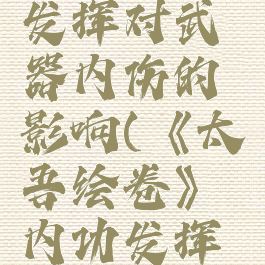 发挥对武
器内伤的
影响(《太
吾绘卷》
内功发挥